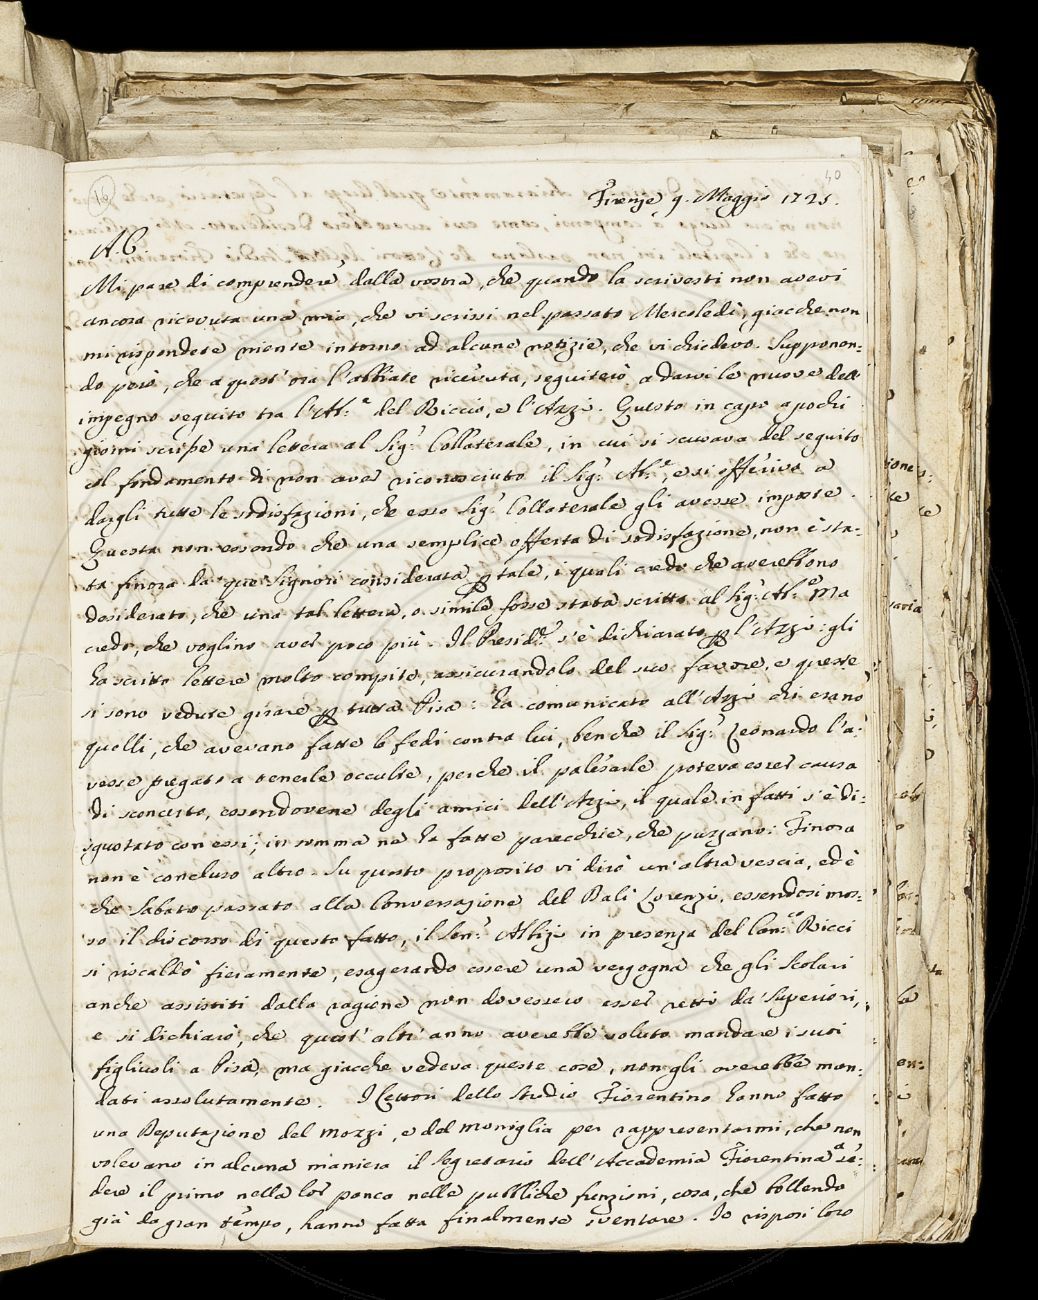 16
40
Firenze 9. Maggio 1725.
A. C.
Mi pare di comprendere dalla vostra, che quando la scrivesti non avevi
ancora ricevuta una mia, che vi scrissi nel passato Mercoledì, giacche non
mi rispondete niente intorno ad alcune notizie, che vi chiedevo. Supponen=
do però, che a quest' ora l'abbiate ricevuta, seguiterò a darvi le nuove dell'
impegno seguito tra l'Ab.e del Riccio, e l'Azzi. Questo in capo a pochi
giorni scrisse una lettera al Sig.r Collaterale, in cui si scusava del seguito
sul fondamento di non aver riconosciuto il Sig.r Ab.e, e si offeriva a
dargli tutte le sodisfazioni, che esso Sig.r Collaterale gli avesse imposte.
Questa non essendo che una semplice offerta di sodisfazione, non è sta=
ta finora da que' Signori considerata p tale, i quali credo che averebbono
desiderato, che una tal lettera, o simile fosse stata scritta al Sig.r Ab.e Ma
credo, che voglino aver poco più. Il Presid.e s'è dichiarato p l'Azzi: gli
ha scritto lettere molto compite, assicurandolo del suo favore, e queste
si sono vedute girare p tutta Pisa: ha comunicato all'Azzi chi erano
quelli, che avevano fatte le fedi contro lui, ben che il Sig.r Leonardo l'a=
vesse pregato a tenerle occulte, perche il palesarle poteva esser causa
di sconcerto, essendovene degli amici dell'Azzi, il quale in fatti s'è di=
sgustato con essi; in somma ne ha fatte parecchie, che puzzano: Finora
non è concluso altro. Su questo proposito vi dirò un'altra vescia, ed è
che Sabato passato alla Conversazione del Balì Lorenzi, essendosi mos=
so il discorso di questo fatto, il Sen.r Albizi in presenza del Can.co Ricci
si riscaldò fieramente, esagerando essere una vergogna che gli Scolari
anche assistiti dalla ragione non dovessero esser retti da' Superiori,
e si dichiarò, che quest' altr' anno averebbe voluto mandare i suoi
figliuoli a Pisa, ma giacche vedeva queste cose, non gli averebbe man=
dati assolutamente. I Lettori dello Studio Fiorentino hanno fatto
una Deputazione del Mozzi, e del Moniglia per rappresentarmi, che non
volevano in alcuna maniera il Segretario dell'Accademia Fiorentina a se=
dere il primo nella lor panca nelle pubbliche funzioni, cosa, che bollendo
già da gran tempo, hanno fatta finalmente sventare. Io risposi loro